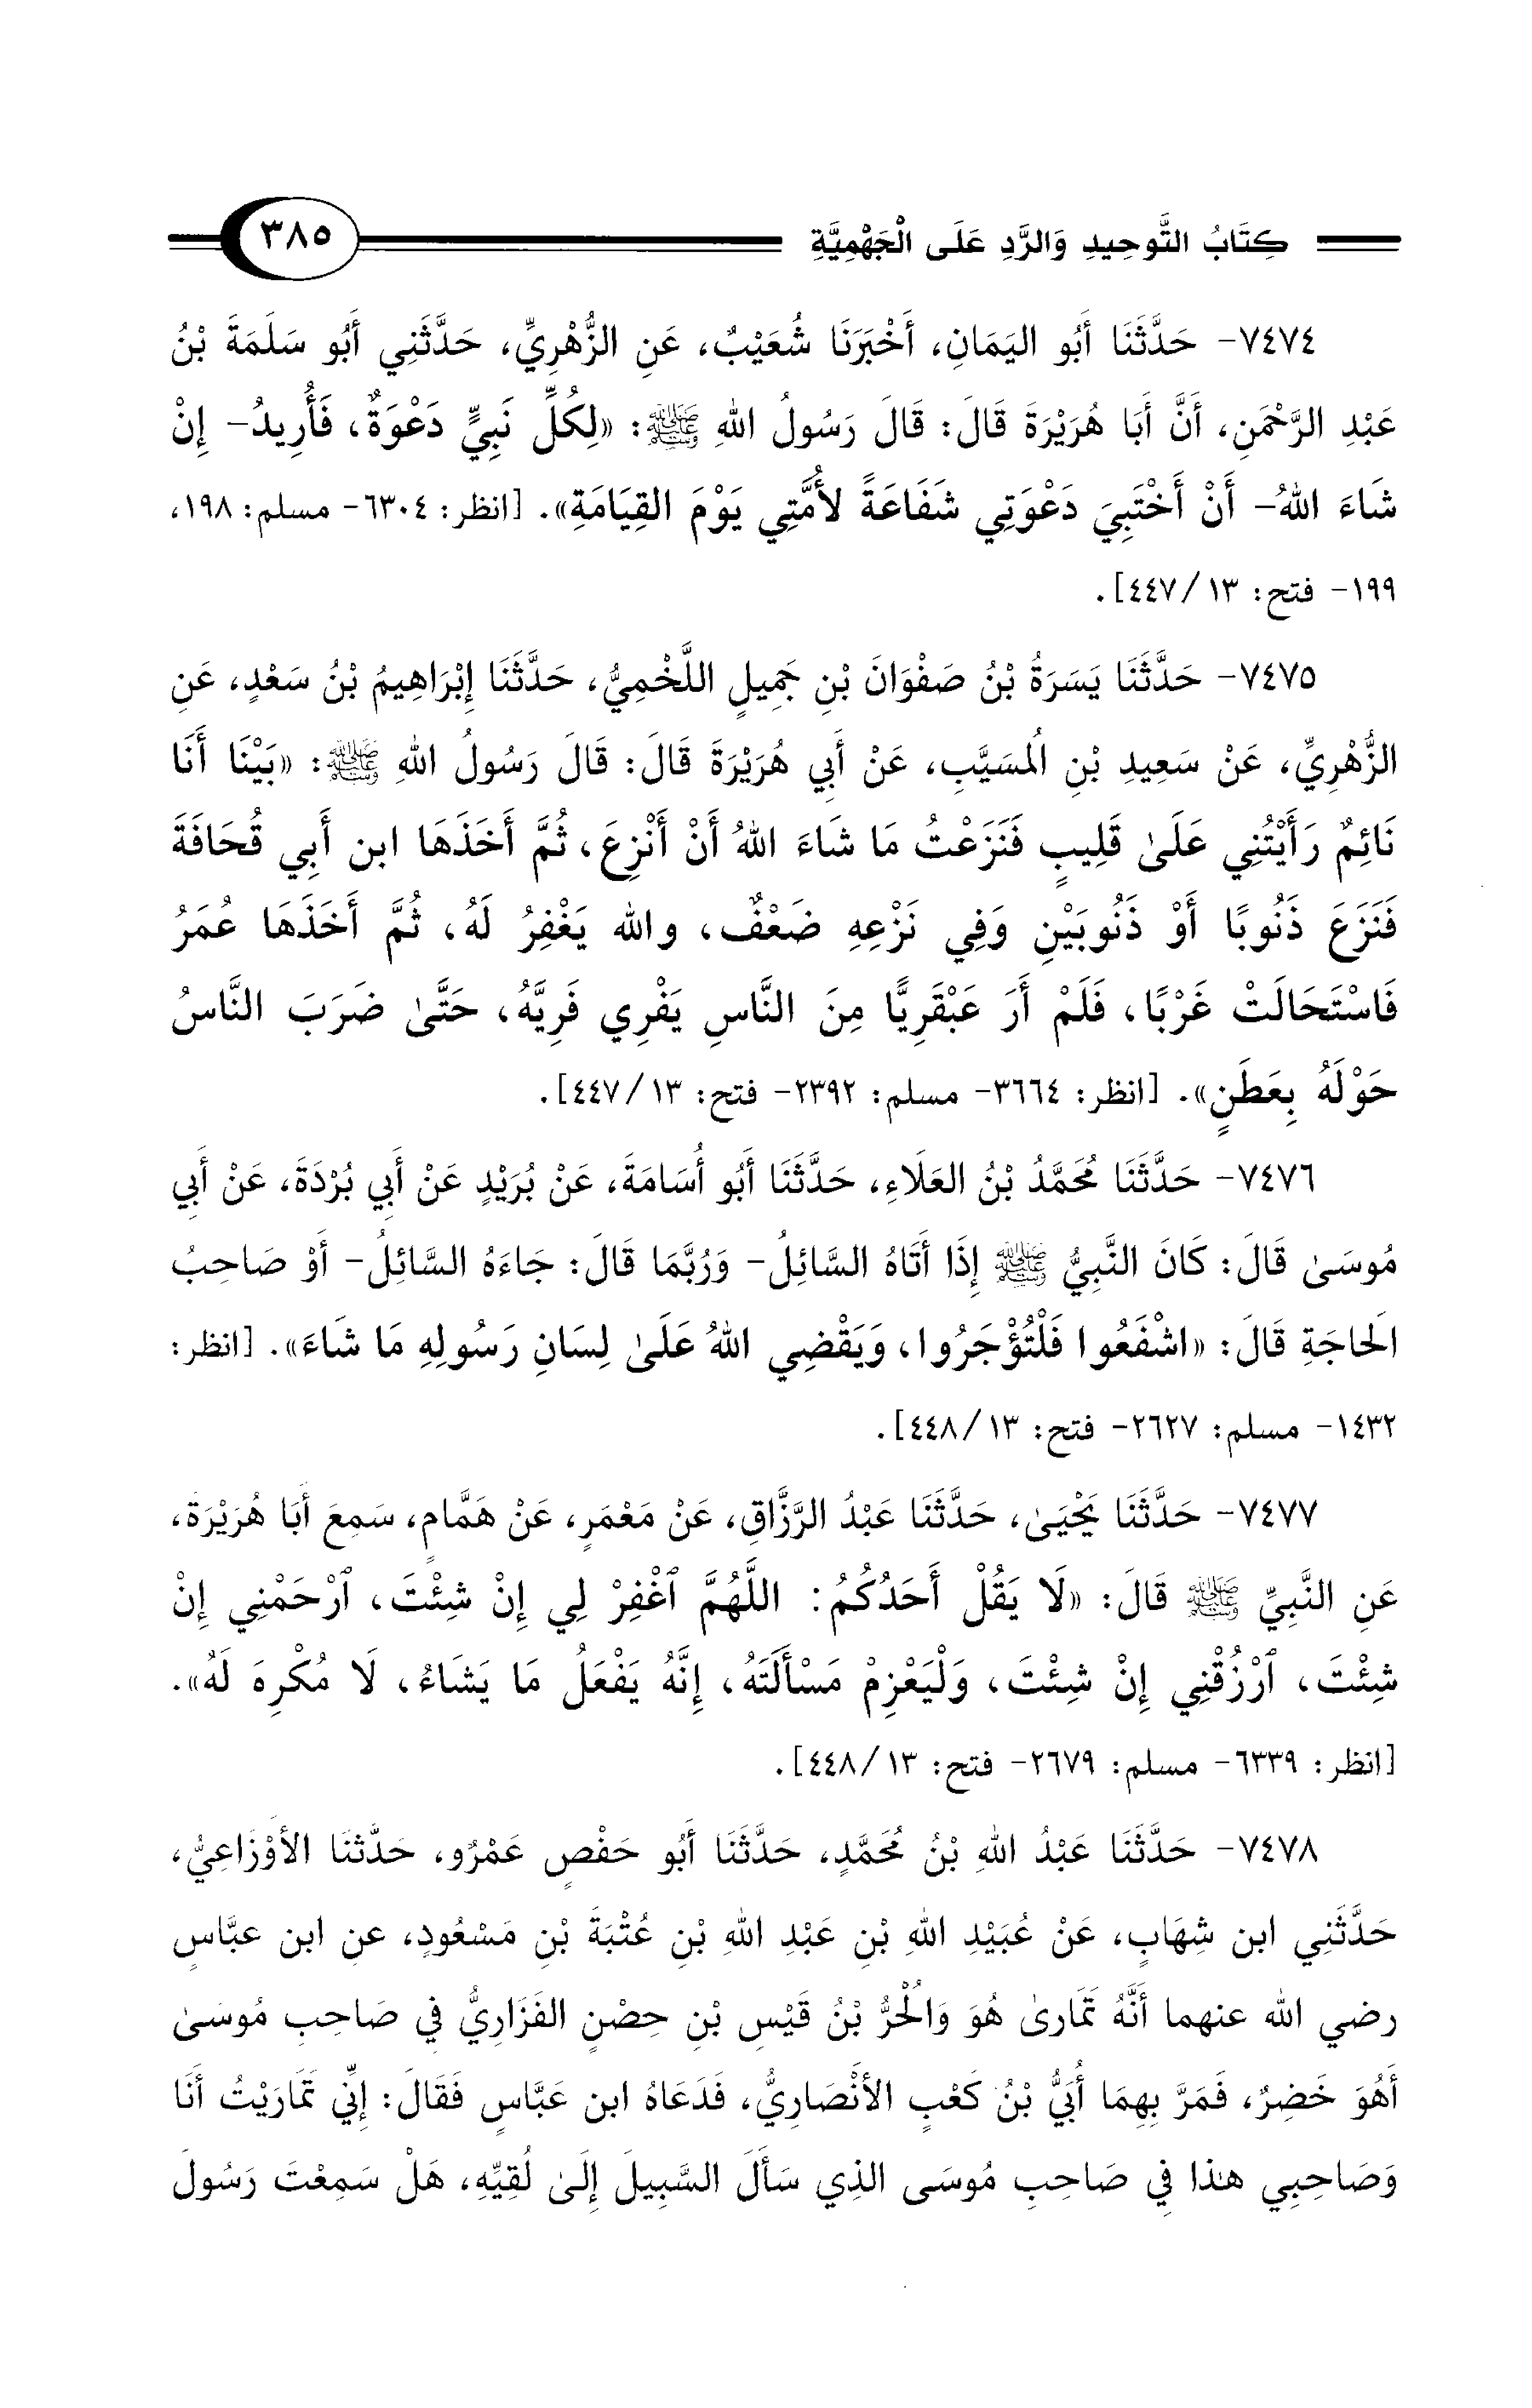 كِتَابُ التَّوحِيدِ وَالرَّدِ عَلَى الْجَهْمِيَّةِ ٣٨٥
٧٤٧٤- حَدَّثَنَا أَبُو اليَمَانِ، أَخْبَرَنَا شُعَيْبٌ، عَنِ الزُّهْرِيِّ، حَدَّثَنِي أَبُو سَلَمَةَ بْنُ
عَبْدِ الرَّحْمَنِ، أَنَّ أَبَا هُرَيْرَةَ قَالَ: قَالَ رَسُولُ اللهِ ﷺ: «لِكُلِّ نَبِيٍّ دَعْوَةٌ، فَأُرِيدُ- إِنْ
شَاءَ اللهُ- أَنْ أَخْتَبِيَ دَعْوَتِي شَفَاعَةً لأُمَّتِي يَوْمَ القِيَامَةِ». [انظر: ٦٣٠٤- مسلم: ١٩٨،
١٩٩- فتح: ١٣/ ٤٤٧].
٧٤٧٥- حَدَّثَنَا يَسَرَةُ بْنُ صَفْوَانَ بْنِ جَمِيلٍ اللَّخْمِيُّ، حَدَّثَنَا إِبْرَاهِيمُ بْنُ سَعْدٍ، عَنِ
الزُّهْرِيِّ، عَنْ سَعِيدِ بْنِ المُسَيَّبِ، عَنْ أَبِي هُرَيْرَةَ قَالَ: قَالَ رَسُولُ اللهِ ﷺ: «بَيْنَا أَنَا
نَائِمٌ رَأَيْتُنِي عَلَىٰ قَلِيبٍ فَنَزَعْتُ مَا شَاءَ اللهُ أَنْ أَنْزِعَ، ثُمَّ أَخَذَهَا ابن أَبِي قُحَافَةَ
فَنَزَعَ ذَنُوبًا أَوْ ذَنُوبَيْنِ وَفِي نَزْعِهِ ضَعْفٌ، والله يَغْفِرُ لَهُ، ثُمَّ أَخَذَهَا عُمَرُ
فَاسْتَحَالَتْ غَرْبًا، فَلَمْ أَرَ عَبْقَرِيًّا مِنَ النَّاسِ يَفْرِي فَرِيَّهُ، حَتَّىٰ ضَرَبَ النَّاسُ
حَوْلَهُ بِعَطَنٍ». [انظر: ٣٦٦٤- مسلم: ٢٣٩٢- فتح: ١٣/ ٤٤٧].
٧٤٧٦- حَدَّثَنَا مُحَمَّدُ بْنُ العَلَاءِ، حَدَّثَنَا أَبُو أُسَامَةَ، عَنْ بُرَيْدٍ عَنْ أَبِي بُرْدَةَ، عَنْ أَبِي
مُوسَىٰ قَالَ: كَانَ النَّبِيُّ ﷺ إِذَا أَتَاهُ السَّائِلُ- وَرُبَّمَا قَالَ: جَاءَهُ السَّائِلُ- أَوْ صَاحِبُ
الحَاجَةِ قَالَ: «اشْفَعُوا فَلْتُؤْجَرُوا، وَيَقْضِي اللهُ عَلَىٰ لِسَانِ رَسُولِهِ مَا شَاءَ». [انظر:
١٤٣٢- مسلم: ٢٦٢٧- فتح: ١٣/ ٤٤٨].
٧٤٧٧- حَدَّثَنَا يَحْيَىٰ، حَدَّثَنَا عَبْدُ الرَّزَّاقِ، عَنْ مَعْمَرٍ، عَنْ هَمَّامٍ، سَمِعَ أَبَا هُرَيْرَةَ،
عَنِ النَّبِيِّ ﷺ قَالَ: «لَا يَقُلْ أَحَدُكُمُ: اللَّهُمَّ ٱغْفِرْ لِي إِنْ شِئْتَ، ٱرْحَمْنِي إِنْ
شِئْتَ، ٱرْزُقْنِي إِنْ شِئْتَ، وَلْيَعْزِمْ مَسْأَلَتَهُ، إِنَّهُ يَفْعَلُ مَا يَشَاءُ، لَا مُكْرِهَ لَهُ».
[انظر: ٦٣٣٩- مسلم: ٢٦٧٩- فتح: ١٣/ ٤٤٨].
٧٤٧٨- حَدَّثَنَا عَبْدُ اللهِ بْنُ مُحَمَّدٍ، حَدَّثَنَا أَبُو حَفْصٍ عَمْرٌو، حَدَّثَنَا الأَوْزَاعِيُّ،
حَدَّثَنِي ابن شِهَابٍ، عَنْ عُبَيْدِ اللهِ بْنِ عَبْدِ اللهِ بْنِ عُتْبَةَ بْنِ مَسْعُودٍ، عنِ ابن عبَّاسٍ
رضي الله عنهما أَنَّهُ تَمَارىٰ هُوَ وَالْحُرُّ بْنُ قَيْسِ بْنِ حِصْنٍ الفَزَارِيُّ فِي صَاحِبِ مُوسَىٰ
أَهُوَ خَضِرٌ، فَمَرَّ بِهِمَا أُبَيُّ بْنُ كَعْبٍ الأَنْصَارِيُّ، فَدَعَاهُ ابن عَبَّاسٍ فَقَالَ: إِنِّي تَمَارَيْتُ أَنَا
وَصَاحِبِي هذا فِي صَاحِبِ مُوسَى الذِي سَأَلَ السَّبِيلَ إِلَىٰ لُقِيِّهِ، هَلْ سَمِعْتَ رَسُولَ